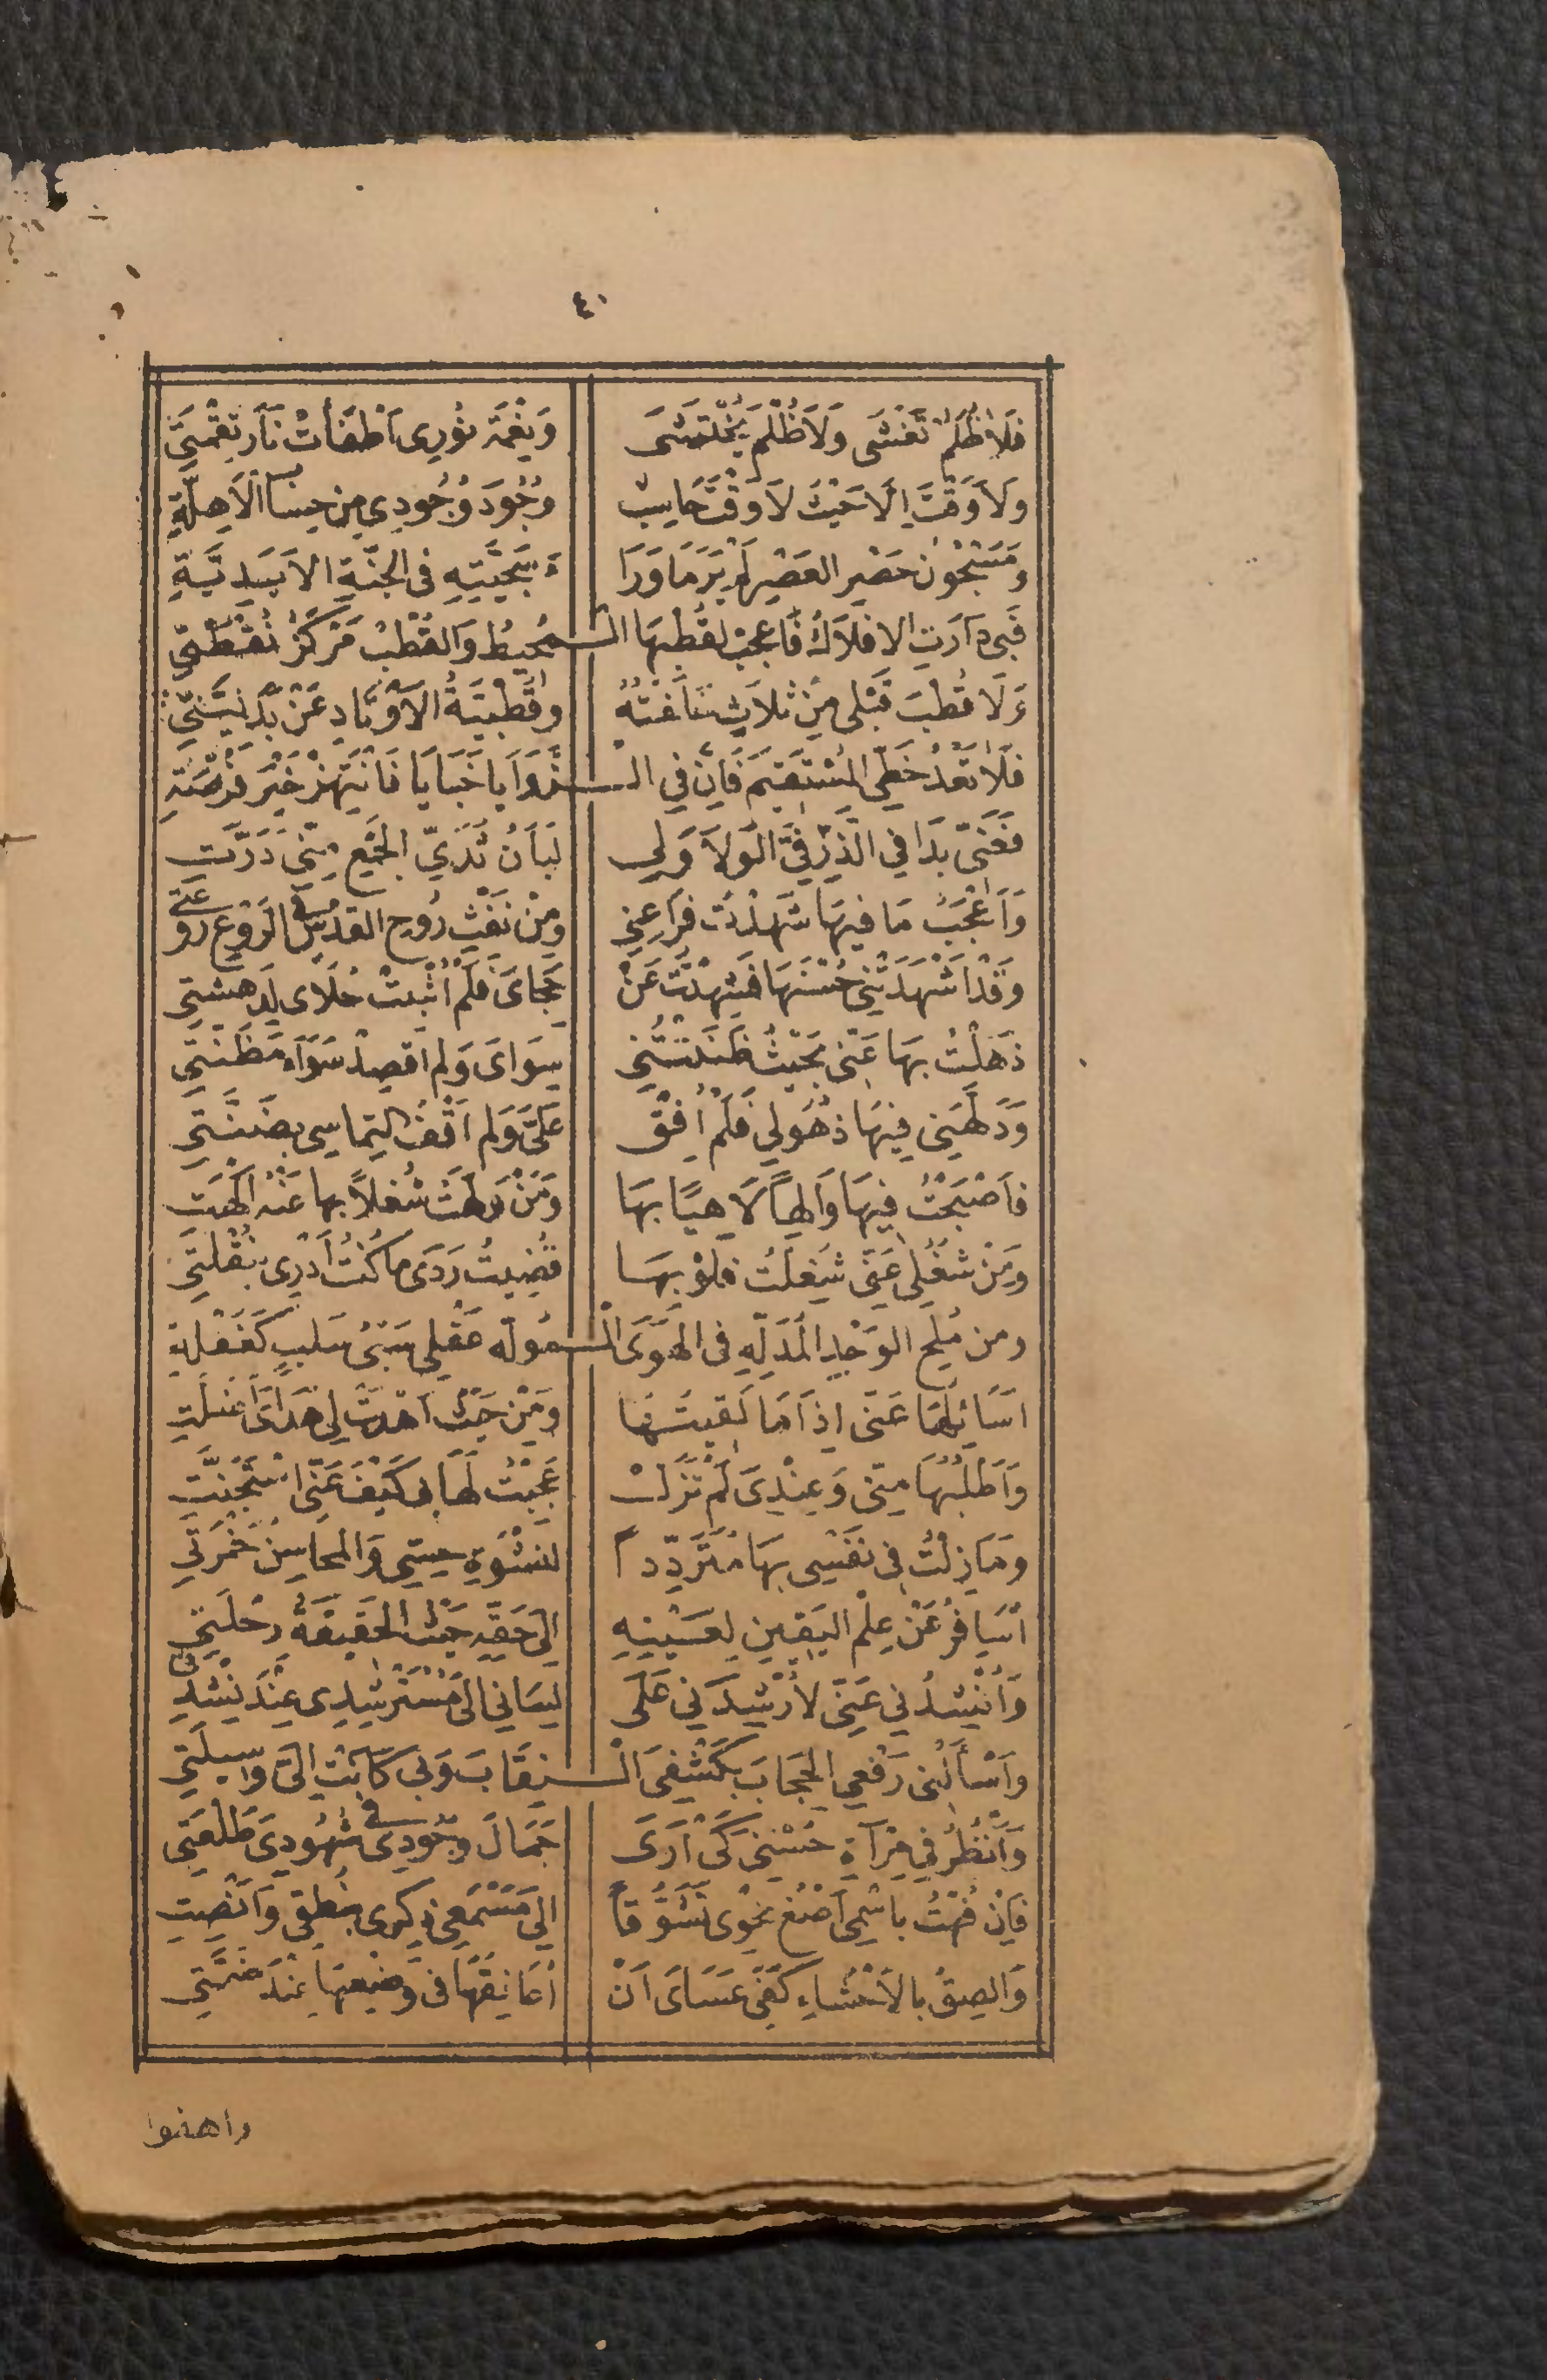 ٤٠
فَلَا ظُلَمٌ تَغْشَى وَلَا ظُلْمَ يُخْتَشَى وَنِعْمَةُ نُورِى اَطْفَأَتْ نَارَ نِقْمَتِى
وَلَا وَقْتَ اِلَّا حَيْثُ لَا وَقْتَ حَاسِبٌ وُجُودَ وُجُودِي مِن حِسَابِ الْاَهِلَّةِ
وَمَسْجُونُ حَصْرِ العَصْرِ لَمْ يَرَ مَا وَرَا ءَ سِجِّيْنِهِ فى الجَنَّةِ الاَبَدِيَّةِ
فَبِى دَارَتِ الافلَاكُ فَاعجَبْ لِقُطْبِهَا الـمُحِيطُ وَالقُطْبُ مَرْكَزُ نُقْطَتِي
وَلَا قُطْبَ قَبْلِى مِنْ ثَلَاثٍ خَلَفْتُهُ وقُطْبِيَّةُ الْاَوْتَادِ عَنْ بَدَلِيَّتِيْ
فَلَا تَعْدُ خَطِّى المُسْتَقِيمَ فَاِنَّ فِي الـزَّوَايَا خَبَايَا فَانْتَهِزْ خَيْرَ فُرْصَةِ
فَعَنِّى بَدَا فِي الذَّرِّ فِيَّ الوَلَا وَلِي لِبَانُ ثُدَيِّ الجَمْعِ مِنِّى دَرَّتِ
وَاَعْجَبُ مَا فِيهَا شَهِدْتُ فَرَاعَنِي وَمِنْ نَفْثِ رُوحِ القُدْسِ فى الرَّوْعِ رَوْعَتِي
وَقَدْ اَشْهَدَتْنِي حُسْنَهَا فَشُدِهْتُ عَنْ حِجَاىَ فَلَمْ اُثْبِتْ حُلَاى لِدَهْشَتِي
ذَهَلْتُ بِهَا عَنِّى بِحَيْثُ ظَنَنْتُنِي سِوَاىَ وَلم اَقصِدْ سَوَآءَ مَظَنَّتِي
وَدَلَّهَنِي فِيهَا ذُهُولِي فَلَمْ اُفِقْ عَلَىَّ وَلم اَقْفُ التِمَاسِى بِظِنَّتِي
فاَصْبَحْتُ فِيهَا وَالِهاً لَاهِيًا بِهَا وَمَنْ وَلَّهَتْ شُغلاً بها عَنْهُ اَلْهَتِ
وَمَنْ شُغُلِى عَنِّى شُغِلتُ فلَوْ بِهَا قُضِيتُ رَدًى مَا كُنْتُ اَدْرِى بِنُقْلَتِي
ومِن مُلَحِ الوَجْدِ المُدَلِّهِ فى الهَوَى الْـمُوَلِّهِ عَقْلِى سَبْىُ سَلْبٍ كَغَفْلَةِ
اُسَائِلُهَا عَنِّى اِذَا مَا لَقِيتُهَا وَمِنْ حَيْثُ اَهْدَتْ لِي هُدَاىَ اَضَلَّتِ
وَاَطْلُبُهَا مِنِّى وَعِنْدِىَ لَمْ تَزَلْ عَجِبْتُ لَهَا بِى كَيْفَ عَنِّى اسْتَجَنَّتِ
وَمَا زِلْتُ فِى نَفْسِى بِهَا مُتَرَدِّداً لِنَشْوَةِ حِسِّي وَالمحاسِنُ خَمْرَتِي
اُسَافِرُ عَنْ عِلْمِ اليَقِينِ لِعَيْنِهِ اِلَى حَقِّهِ حَيْثُ الحَقِيقَةُ رِحْلَتِي
وَاَنْشُدُنِي عَنِّى لِاُرْشِدَنِي عَلَى لِسَانِي اِلَى مُسْتَرْشِدِى عِنْدَ نِشْدَتِي
وَاَسْاَلُنِى رَفْعِي الحِجَابَ بِكَشْفِىَ الْـنِقَابَ وَبِى كَانَتْ اِلَىَّ وَسِيلَتِي
وَاَنْظُرُ فِي مِرْآةِ حُسْنِىَ كَىْ اَرَى جَمَالَ وُجُودِى فى شُهُودِىَ طَلْعَتِى
فَاِنْ فُهْتُ بِاسْمِى اُصْغِ نَحْوِى تَشَوُّقاً اِلَى مُسْمِعِى ذِكْرِى بِنُطْقِى وَاُنْصِتِ
وَاُلصِقُ بِالْاَحْشَاءِ كَفِّى عَسَاىَ اَنْ اُعَانِقَهَا فى وَضْعِهَا عِنْدَ ضَمَّتِي
واهفوا